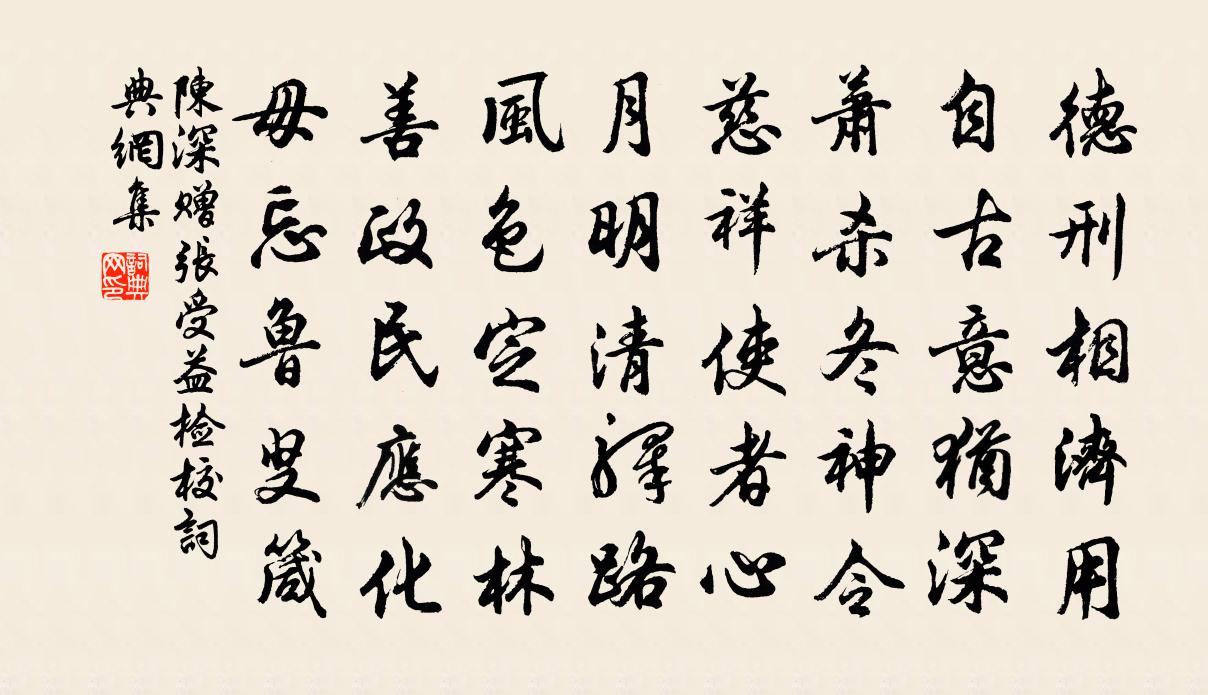 德刑相濟用
自古意猶深
蕭杀冬神令
慈祥使者心
月明清驛路
風色定寒林
善政民應化
毋忘魯叟箴
陳深赠張受益检校詞
典網集
詞典
网印